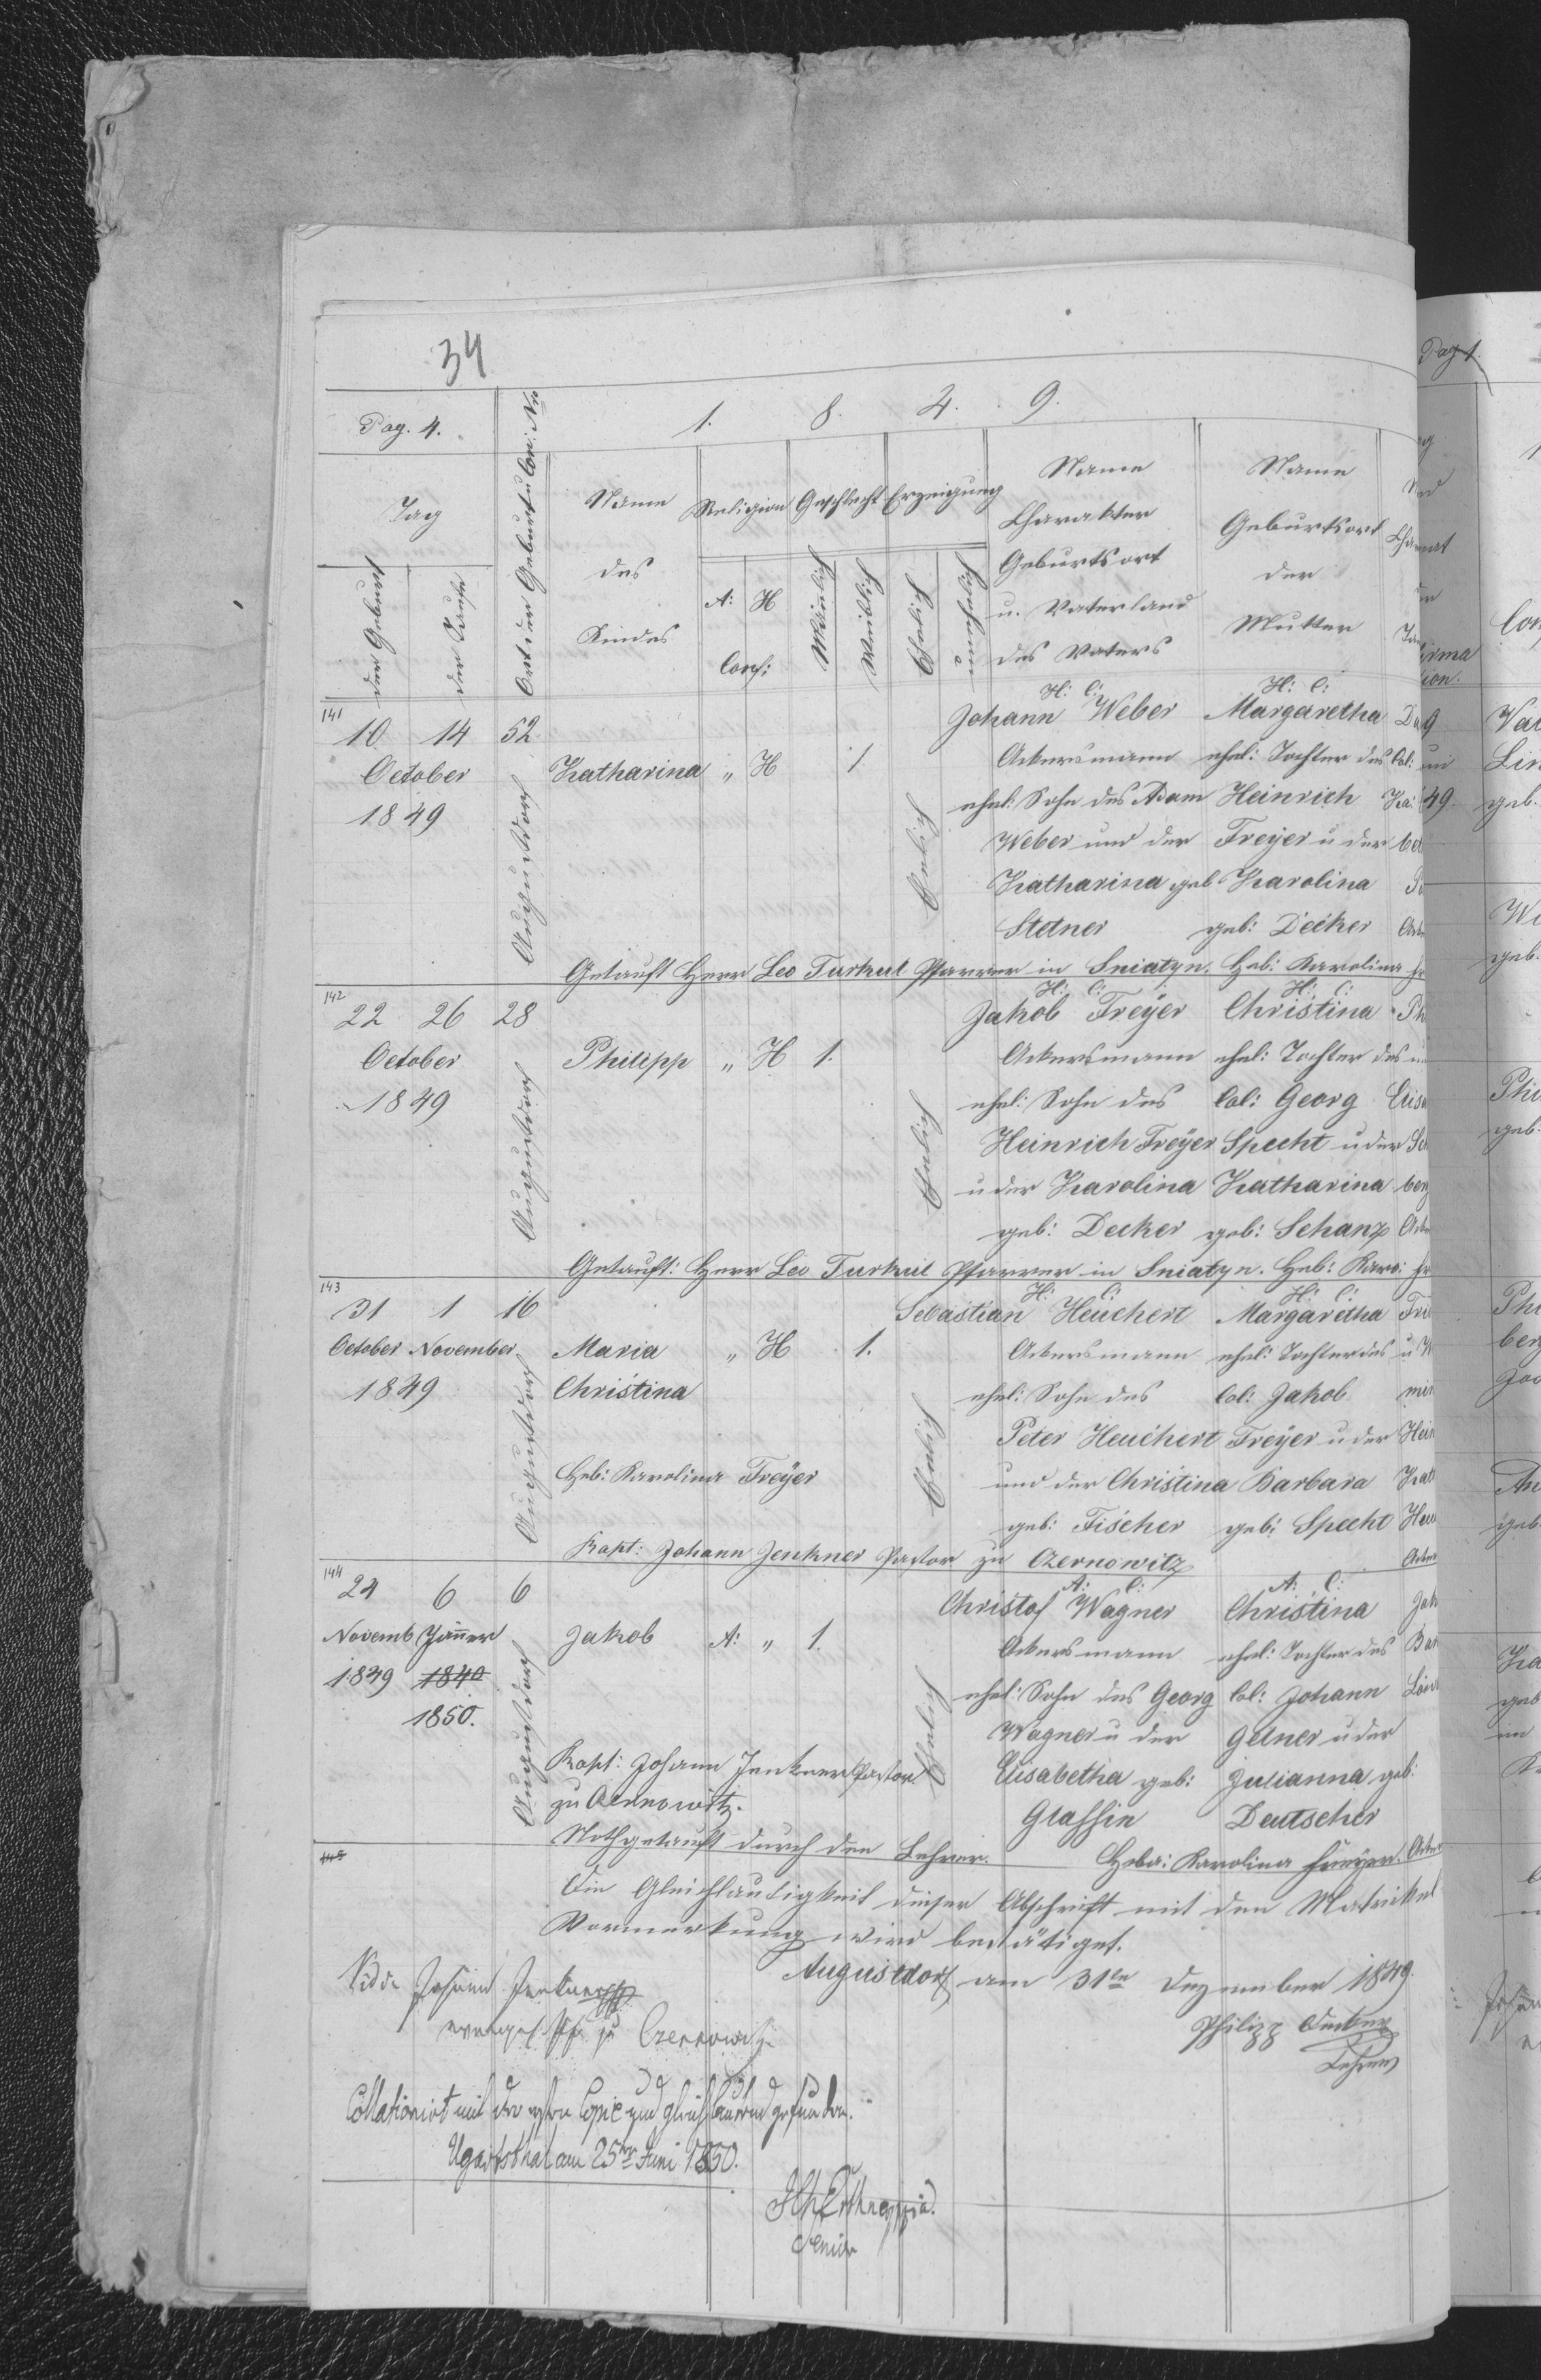 34
Pag. 4.
1. 8. 4. 9.
Tag
der Geburt
der Taufe
Ort der Geburt u Con: Nro
Name
des
Kindes
Religion
A: H
Conf:
Geschlecht
Mänlich
Weiblich
Erzeigung
Ehelich
unehelich
Name
Charakter
Geburtsort
u. Vaterland
des Vaters
Name
Geburtsort
der
Mutter
141
10 14 52
October
1849
Augustdorf
Katharina „ H 1
Ehelich
H: C:
Johann Weber
Ackersmann
ehel: Sohn des Adam
Weber und der
Katharina geb
Stetner
H: C:
Margaretha
ehel: Tochter des Col:
Heinrich
Freyer u der
Karolina
geb: Decker
Getauft Herr Leo Turkul Pfarrer in Sniatyn. Heb: Karolina
142
22 26 28
October
1849
Augustdorf
Philipp „ H 1.
Ehelich
H: C:
Jakob Freyer
Ackersmann
ehel: Sohn des
Heinrich Freyer
u der Karolina
geb: Decker
H: C:
Christina
ehel: Tochter des
Col: Georg
Specht u der
Katharina
geb: Schanz
Getauft: Herr Leo Turkul Pfarrer in Sniatyn. Heb: Karo:
143
31 1 16
October November
1849
Augustdorf
Maria „ H 1.
Christina
Heb: Karolina Freyer
Ehelich
H: C:
Sebastian Heuchert
Ackersmann
ehel: Sohn des
Peter Heuchert
und der Christina
geb: Fischer
H: C:
Margaretha
ehel: Tochter des
Col: Jakob
Freyer u der
Barbara
geb: Specht
Bapt: Johann Jenkner Pastor zu Czernowitz
144
24 6 6
Novemb Jäner
1849 1840
1850.
Augustdorf
Jakob A: „ 1.
Bapt: Johann Jenkner Pastor
zu Czernowitz.
Nothgetauft durch den Lehrer.
Ehelich
A: C:
Christof Wagner
Ackersmann
ehel: Sohn des Georg
Wagner u der
Elisabetha geb:
Glassin
A: C:
Christina
ehel: Tochter des
Col: Johann
Gelner u der
Julianna geb:
Deutscher
Heba: Karolina Freyer.
145
Die Gleichlautigkeit dieser Abschrift mit den Matrikel
Vormerkung wird bestätiget.
Augustdorf am 31ten Dezember 1849.
Philipp Decker
Lehrer
Vidi Johann Jenkner
evangel. Pfr zu Czernowitz
Collationirt mit der ersten Copie und gleichlautend gefunden.
Ugartsthal am 25ten Juni 1850.
Senior
Pag 1.